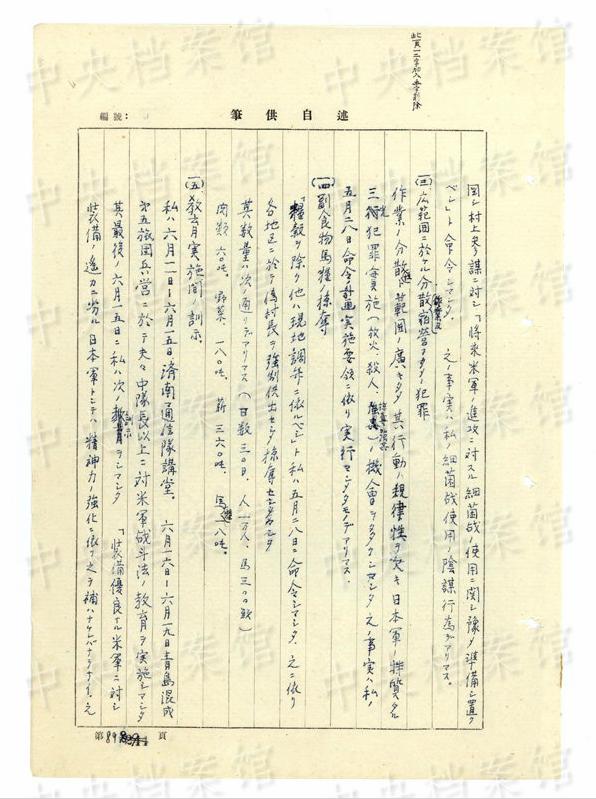 此頁一二字加入叁字删除
編號：
筆供自述
固シ村上参謀ニ対シ「将来米軍ノ進攻ニ対スル細菌战ノ使用ニ関シ豫メ準備シ置ク
ベシ」ト命令シマシタ。之ノ事実ハ私ノ細菌战使用ノ陰謀行為デアリマス。
(三)広範囲ニ於ケル分散宿営
作業ノ分散 範囲ノ広キタメ其行動ハ規律性ヲ欠キ日本軍ノ特質タル
三 犯罪実施（放火、殺人 ）ノ機会ヲ 之ノ事実ハ私ノ
五月二八日命令計画実施要領ニ依リ実行セシメタモノデアリマス。
(四)副食物馬糧ノ掠奪
「糧穀ヲ除ク他ハ現地調弁ニ依ルベシ」ト私ハ五月二八日ニ命令シマシタ、之ニ依リ
各地区ニ於テ偽村長ヲ強制供出セシメ掠奪
其数量ハ次ノ通リデアリマス（日数三〇日、人一万人、馬三〇〇 ）
肉類 六〇屯。野菜 一八〇屯。薪 三六〇屯。馬糧 一八屯。
(五)教育実施間ノ訓示。
私ハ六月一一日ー六月一五日済南通信隊講堂。六月一六日ー六月一九日青島混成
第五旅団兵営ニ於テ夫々中隊長以上ニ対米軍战斗法ノ教育ヲ実施シマシタ
其最後ノ六月一五日ニ私ハ次ノ訓示ヲシマシタ 「装備優良ナル米軍ニ対シ
装備ノ遙カニ劣ル日本軍トシテハ精神力ノ強化ニ依リ之ヲ補ハナケレバナラナイ。之
第89頁